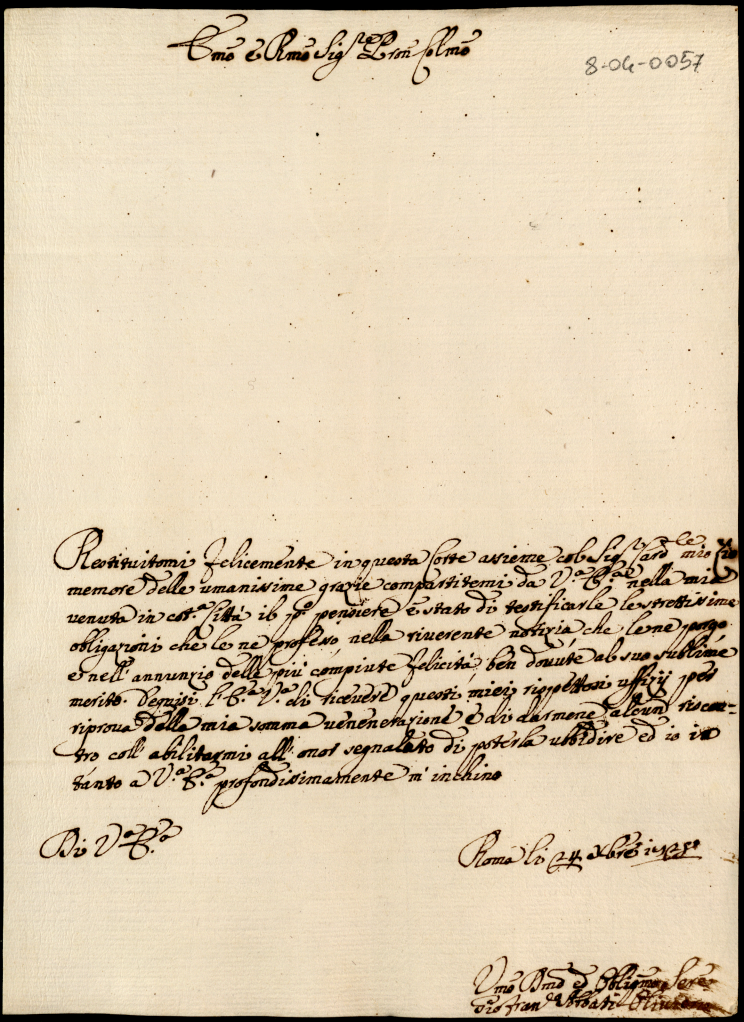 Emo e Rmo Sigre Pron Colmo
8-04-0057
Restituitomi felicemente in questa Corte assieme col Sigr Cardle mio Zio
memore delle umanissime grazie compartitemi da Va Ea nella mia
venuta in cota Città il po pensiere è stato di testificarle le strettissime
obligazioni che le ne professo, nella riverente notizia che le ne porgo
e nell' annunzio delle più compiute felicità ben dovute al suo sublime
merito. Degnisi l'Ea Va di ricevere questi miei rispettosi uffizij per
riprova della mia somma venenerazione e di darmene alcun riscon-
tro coll' abilitarmi all' onor segnalato di poterla ubbidire ed io in
tanto a Va Ea profondissimamente m' inchino
Di Va Ea
Roma li 24 Xbre
Umo Dmo ed Obligmo Sere